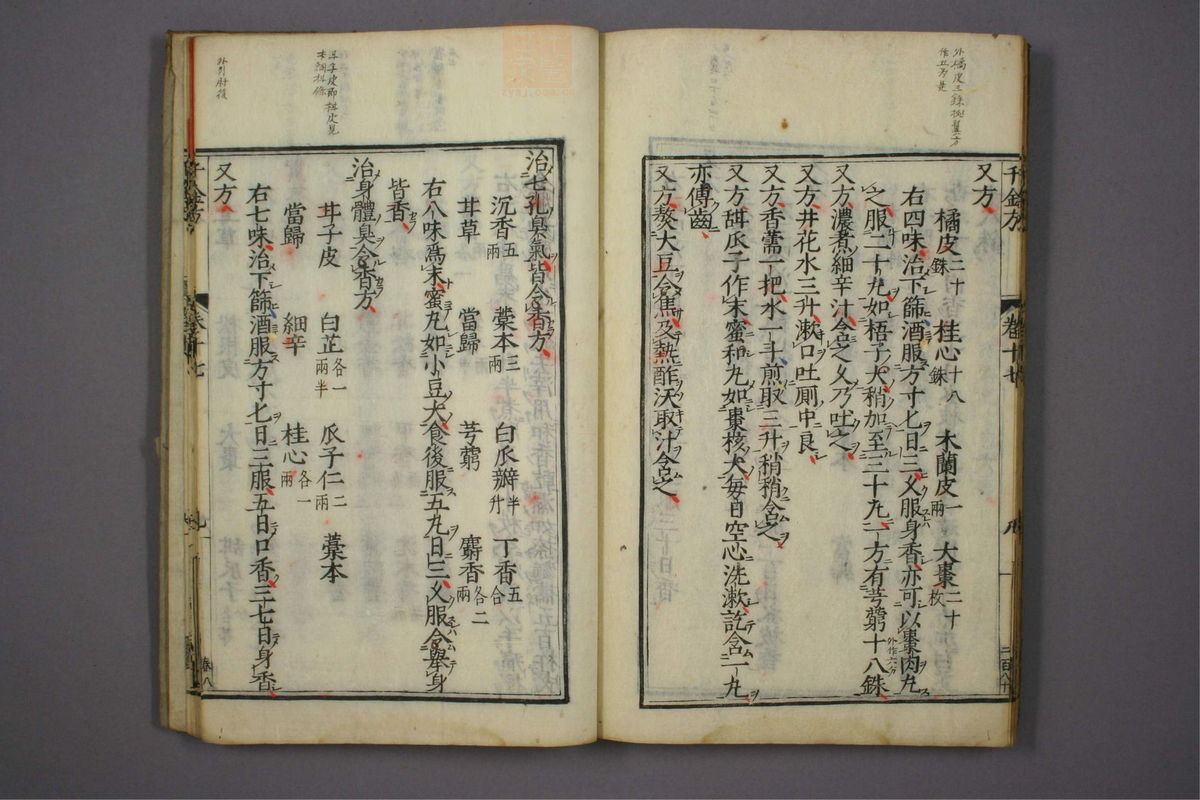 又方
橘皮二十銖 桂心十八銖 木蘭皮一兩 大棗二十枚
右四味治下篩酒服方寸匕日三久服身香亦可以棗肉丸
之服二十丸如梧子大稍加至三十丸一方有芎藭十八銖
又方濃煮細辛汁含之久乃吐之
又方井花水三升漱口吐厠中良
又方香薷一把水一斗煎取三升稍稍含之
又方甜瓜子作末蜜和丸如棗核大每日空心洗漱訖含一丸
亦傅齒
又方熬大豆令焦及熱酢沃取汁含之
千金方 卷十七
治七孔臭氣皆令香方
沉香五兩 藁本三兩 白瓜瓣半升 丁香五合
甘草 當歸 芎藭 麝香各二兩
右八味為末蜜丸如小豆大食後服五丸日三久服令舉身
皆香
治身體臭令香方
甘子皮 白芷各一兩半 瓜子仁二兩 藁本
當歸 細辛 桂心各一兩
右七味治下篩酒服方寸匕日三服五日口香三七日身香
又方
千金方 卷十七